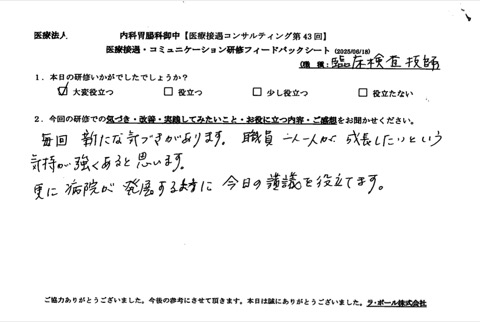 医療法人 内科胃腸科御中【医療接遇コンサルティング第43回】
医療接遇・コミュニケーション研修フィードバックシート (2025/06/18)
(職種:臨床検査技師
1.本日の研修いかがでしたでしょうか?
☑大変役立つ □役立つ □少し役立つ □役立たない
2.今回の研修での気づき・改善・実践してみたいこと・お役に立つ内容・ご感想をお聞かせください。
毎回 新たな気づきがあります。職員一人一人が成長したいという
気持が強くあると思います。
更に病院が発展する様に今日の講議を役立てます。
ご協力ありがとうございました。今後の参考にさせて頂きます。本日は誠にありがとうございました。ラ・ポール株式会社